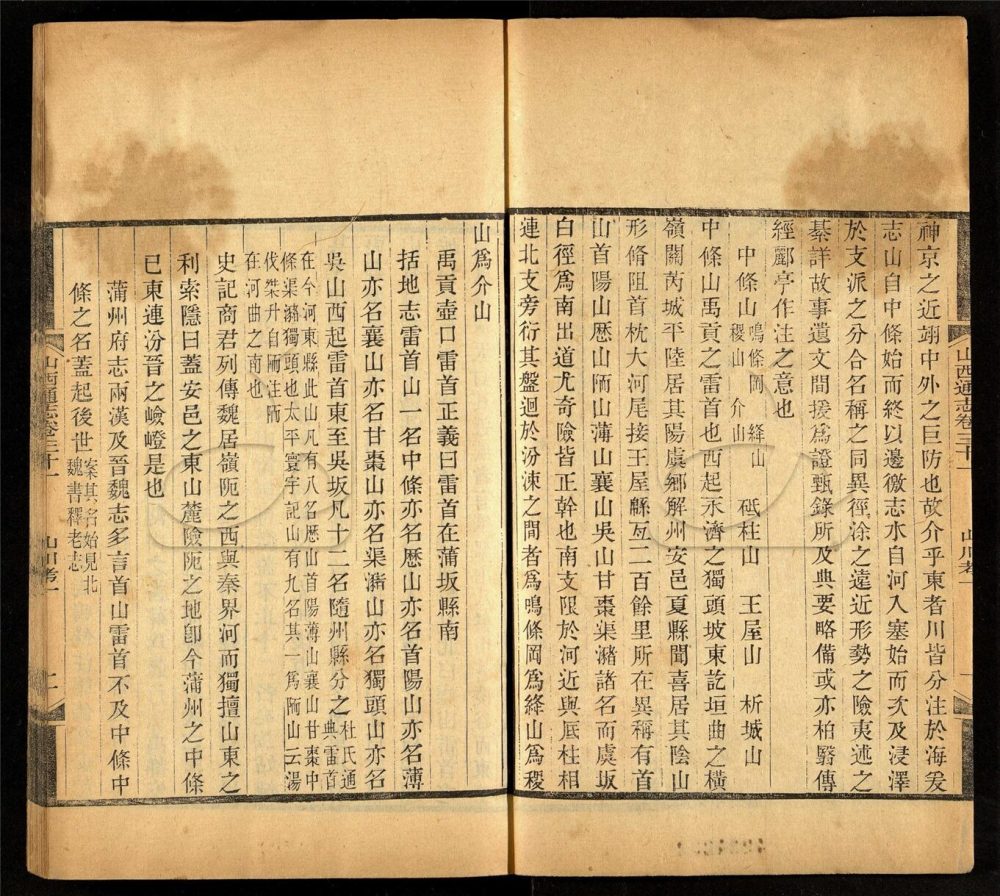 神京之近翊中外之巨防也故介乎東者川皆分注於海爰
志山自中條始而終以邊徼志水自河入塞始而次及浸澤
於支派之分合名稱之同異徑涂之遠近形勢之險夷述之
綦詳故事遺文間援為證甄錄所及典要略備或亦柏翳傳
經酈亭作注之意也
中條山 鳴條岡 絳山 砥柱山 王屋山 析城山
稷山 介山
中條山禹貢之雷首也西起永濟之獨頭坡東訖垣曲之橫
嶺關芮城平陸居其陽虞鄉解州安邑夏縣聞喜居其陰山
形脩阻首枕大河尾接王屋緜亙二百餘里所在異稱有首
山首陽山歷山陑山薄山襄山吳山甘棗渠瀦諸名而虞坂
白徑為南出道尤奇險皆正幹也南支限於河近與厎柱相
連北支旁衍其盤迴於汾涑之間者為鳴條岡為絳山為稷
山西通志卷三十一 山川考一 一
山為介山
禹貢壺口雷首正義曰雷首在蒲坂縣南
括地志雷首山一名中條亦名歷山亦名首陽山亦名薄
山亦名襄山亦名甘棗山亦名渠瀦山亦名獨頭山亦名
吳山西起雷首東至吳坂凡十二名隨州縣分之 杜氏通
典雷首
在今河東縣此山凡有八名歷山首陽薄山襄山甘棗中
條渠瀦獨頭也太平寰宇記山有九名其一為陑山云湯
伐桀升自陑注陑
在河曲之南也
史記商君列傳魏居嶺阨之西與秦界河而獨擅山東之
利索隱曰蓋安邑之東山麓險阨之地卽今蒲州之中條
已東連汾晉之嶮嶝是也
蒲州府志兩漢及晉魏志多言首山雷首不及中條中
條之名蓋起後世 案其名始見北
魏書釋老志
山西通志卷三十一 山川考一 二